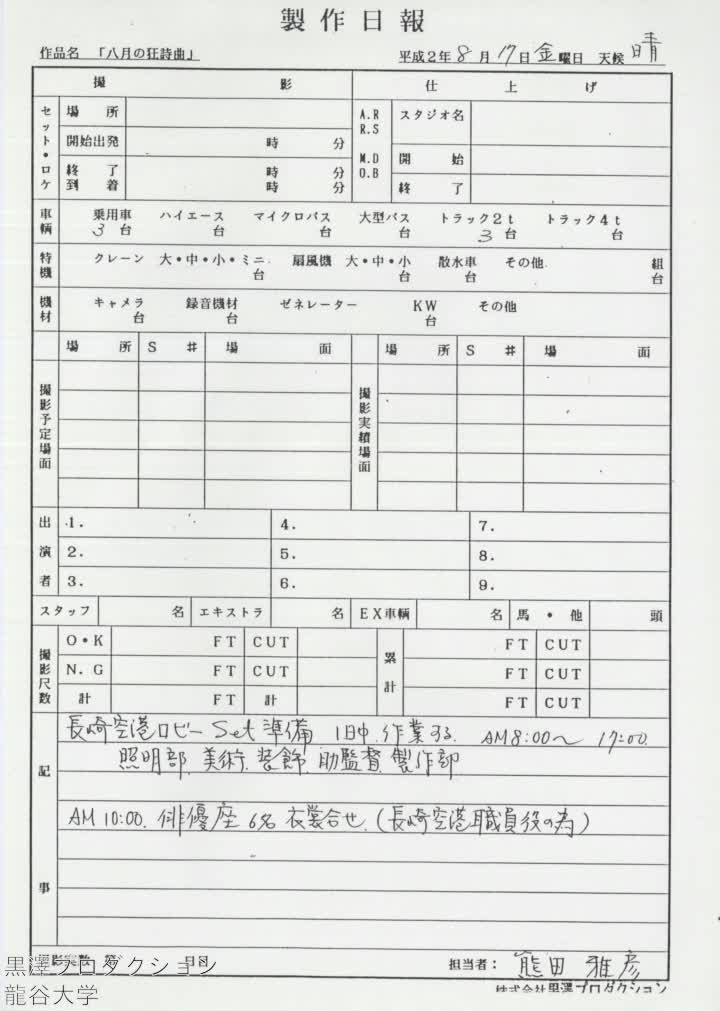 製作日報
作品名 「八月の狂詩曲」 平成2年8月17日金曜日 天候 晴
撮 影 仕 上 げ
セット・ロケ 場 所 A.R R.S M.D O.B スタジオ名
開始出発 時 分 開 始
終 了 時 分 終 了
到 着 時 分
車輌 乗用車 ハイエース マイクロバス 大型バス トラック2t トラック4t
3台 台 台 台 3台 台
特機 クレーン 大・中・小・ミニ 扇風機 大・中・小 散水車 その他 組
台 台 台 台
機材 キャメラ 録音機材 ゼネレーター KW その他
台 台 台
場 所 S # 場 面 場 所 S # 場 面
撮影予定場面 撮影実績場面
出演者 1. 4. 7.
2. 5. 8.
3. 6. 9.
スタッフ 名 エキストラ 名 EX車輌 名 馬・他 頭
撮影尺数 O・K FT CUT 累計 FT CUT
N.G FT CUT FT CUT
計 FT 計 FT CUT
記事
長崎空港ロビーSet準備 1日中作業する。AM8:00〜17:00.
照明部.美術.装飾.助監督.製作部
AM10:00.俳優座6名衣裳合せ.(長崎空港職員役の為)
担当者: 熊田雅彦
株式会社黒澤プロダクション
黒澤プロダクション
龍谷大学